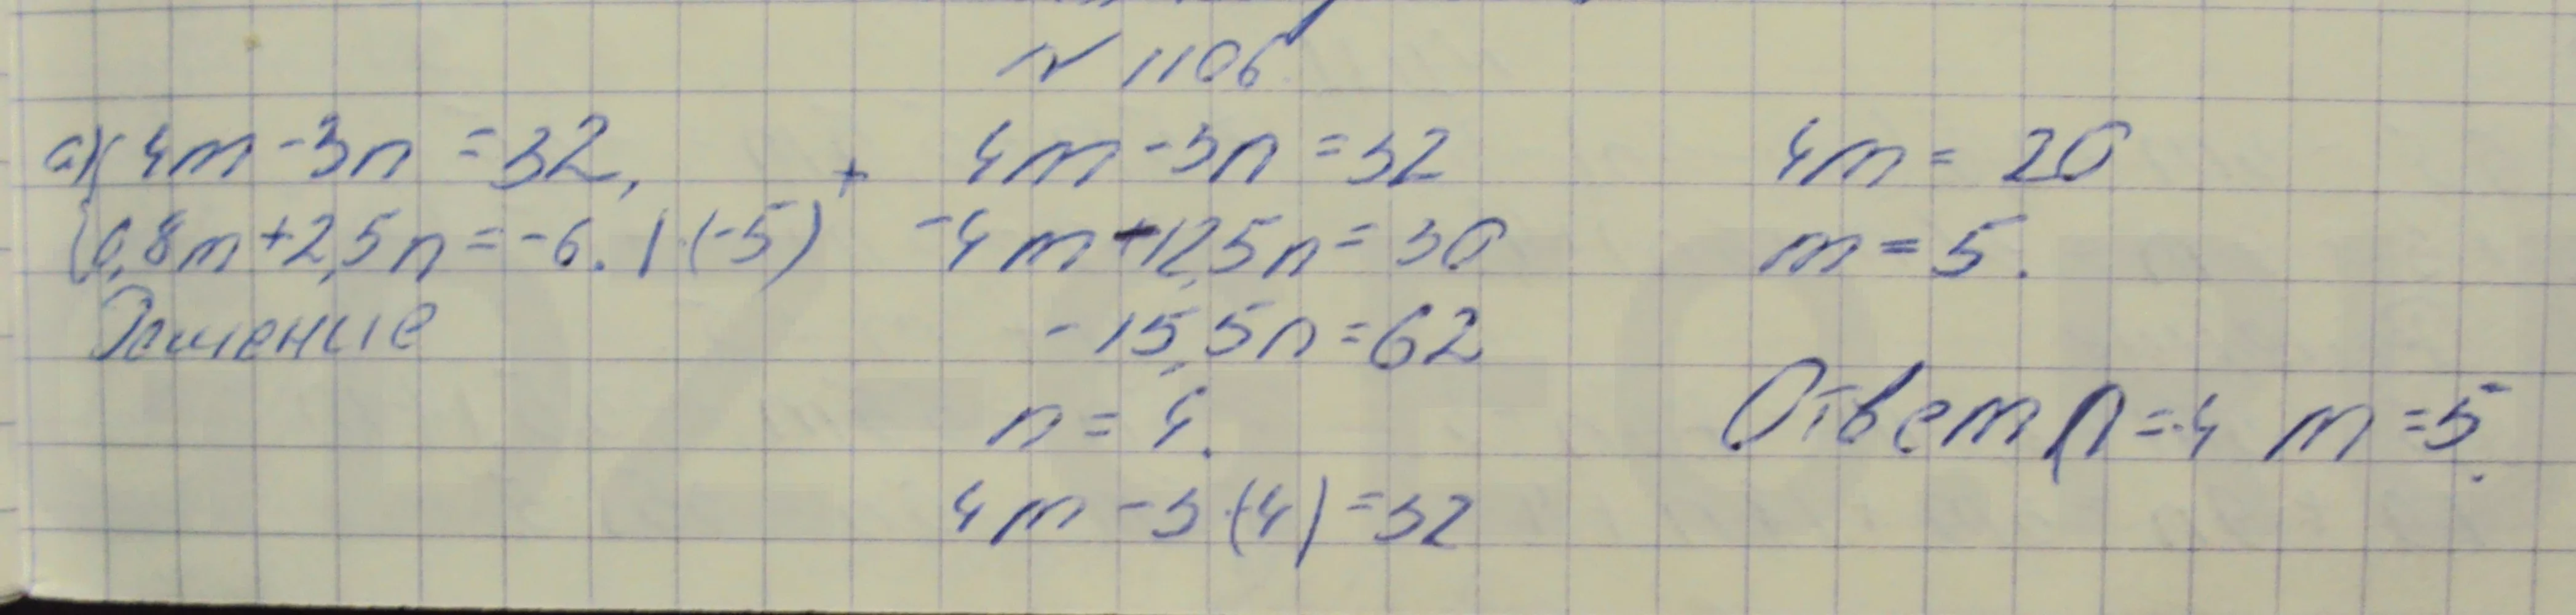 № 1106.
а) { 4m - 3n = 32,
0,8m + 2,5n = -6. | · (-5)
Решение
+ 4m - 3n = 32
-4m - 12,5n = 30
-15,5n = 62
n = 4.
4m - 3·(4) = 32
4m = 20
m = 5.
Ответ n = -4 m = 5.